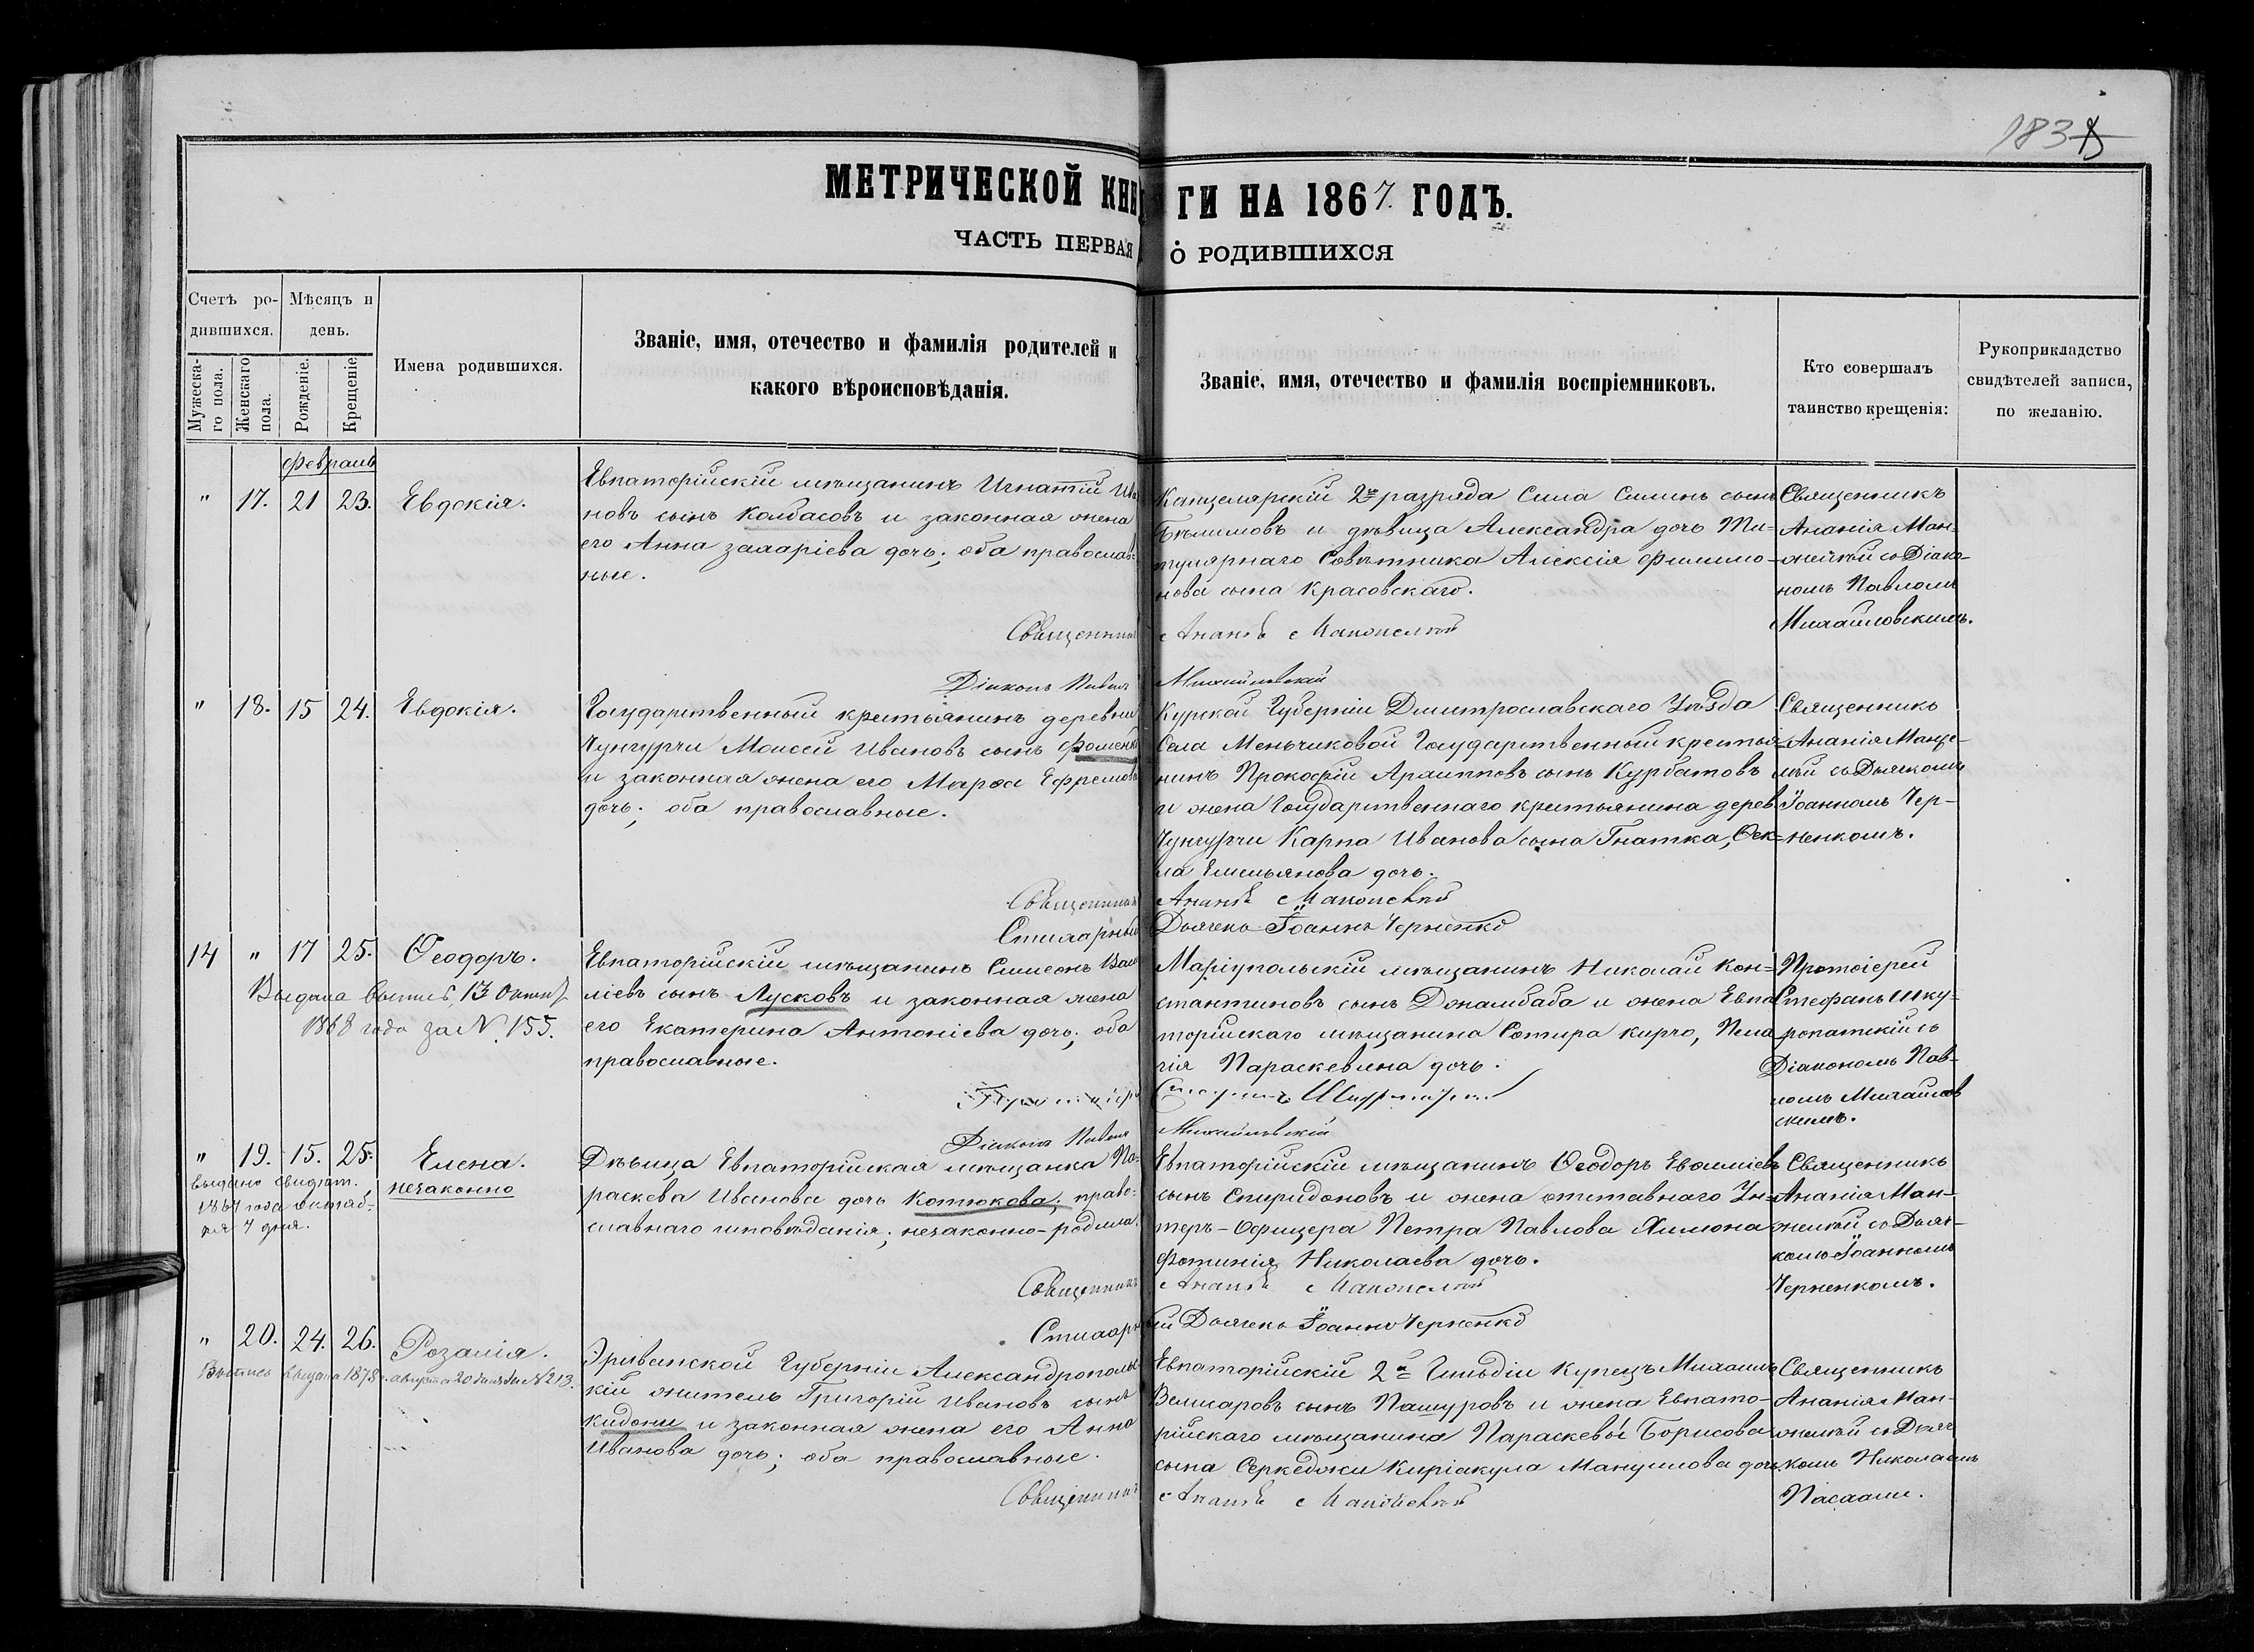 183
МЕТРИЧЕСКОЙ КНИГИ НА 1867. ГОДЪ.
ЧАСТЬ ПЕРВАЯ О РОДИВШИХСЯ
Счетъ ро-
дившихся.
Мѣсяцъ и
день.
Мужеска-
го пола.
Женскаго
пола.
Рожденіе.
Крещеніе
Имена родившихся.
Званіе, имя, отечество и фамилія родителей и
какого вѣроисповѣданія.
Званіе, имя, отечество и фамилія воспріемниковъ.
Кто совершалъ
таинство крещенія:
Рукоприкладство
свидѣтелей записи,
по желанію.
Февраль
" 17. 21 23. Евдокія.
Евпаторійскій мѣщанинъ Игнатій Ива
новъ сынъ Колбасовъ и законная жена
его Анна Захаріева дочь; оба православ-
ные.
Канцелярскій 2го разряда Сила Силинъ сынъ
Бѣлимовъ и дѣвица Александра дочь Ти-
тулярнаго Совѣтника Алексія Филимо-
нова сына Красовскаго.
Священникъ
Ананія Ман-
жейскій съ Діако-
номъ Павломъ
Михайловскимъ.
Священникъ Ананій
Діаконъ Павелъ Михайловскій
" 18. 15 24. Евдокія.
Государственный крестьянинъ деревни
Чунгурчи Моисей Ивановъ сынъ Фоменко
и законная жена его Марѳа Ефремова
дочь; оба православные.
Курской Губерніи Дмитрославскаго Уѣзда
Села Меньчиковой Государственный крестья-
нинъ Прокофій Архипповъ сынъ Курбатовъ
и жена Государственнаго крестьянина дерев.
Чунгурчи Карпа Иванова сына Гнатка, Ѳек-
ла Емельянова дочь.
Священникъ
Ананія Манже-
лѣй съ Дьячкомъ
Іоанномъ Чер-
ненкомъ.
Священникъ Ананій
Стихарный Дьячекъ Іоаннъ Черненко
14 " 17 25. Ѳеодоръ.
Выдана выпись 13 Октяб
1868 года за N. 155.
Евпаторійскій мѣщанинъ Симеонъ Васи
ліевъ сынъ Лусковъ и законная жена
его Екатерина Антоніева дочь; оба
православные.
Маріупольскій мѣщанинъ Николай Кон-
стантиновъ сынъ Джамбаба и жена Евпа
торійскаго мѣщанина Сотира Кирчо, Пела
гія Параскевина дочь.
Протоіерей
Стефанъ Шку-
ропатскій съ
Діакономъ Пав-
ломъ Михайлов
скимъ.
Діаконъ Павелъ Михайловскій
" 19. 15. 25. Елена.
незаконно
выдано свидѣт.
1867 года октяб-
ря 7 дня.
Дѣвица Евпаторійская мѣщанка Па-
раскева Иванова дочь Котюкова; право-
славнаго исповѣданія; незаконно-родила.
Евпаторійскій мѣщанинъ Ѳеодоръ Евѳиміевъ
сынъ Спиридоновъ и жена отставнаго Ун-
теръ-Офицера Петра Павлова Химона
Фотинія Николаева дочь.
Священникъ
Ананія Ман-
желѣй съ Дьяч-
комъ Іоанномъ
Черненкомъ.
Священникъ Ананій
Стихарный Дьячекъ Іоаннъ Черненко
" 20. 24. 26. Розалія.
Выпись выдана 1875 г. августа 20 дня за N 213.
Эриванской Губерніи Александрополь-
кій житель Григорій Ивановъ сынъ
Кидони и законная жена его Анна
Иванова дочь; оба православные.
Евпаторійскій 2й Гильдіи Купецъ Михаилъ
Велисаровъ сынъ Пашуровъ и жена Евпато-
рійскаго мѣщанина Параскевы Борисова
сына Серкеджи Киріакула Мануилова дочь.
Священникъ
Ананія Ман-
желѣй съ Дьяч
комъ Николаемъ
Пасхали.
Священникъ Ананій